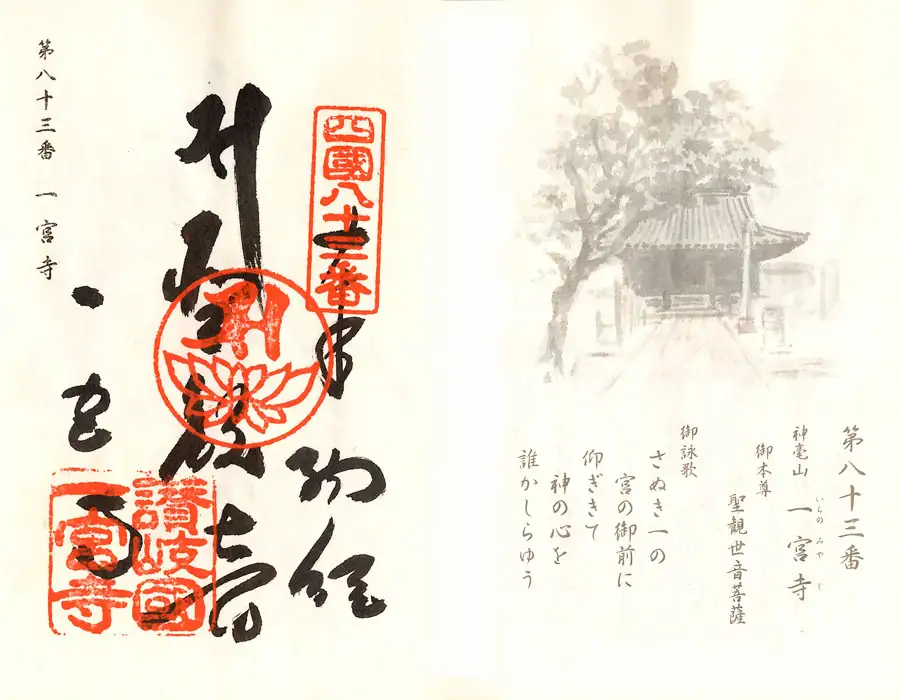 第八十三番
神毫山 一宮寺
いちの みや じ
御本尊
聖観世音菩薩
御詠歌
さぬき一の
宮の御前に
仰ぎきて
神の心を
誰かしらゆう
四國八十三番
奉納経
一宮寺
讃岐國
一宮寺
第八十三番 一宮寺